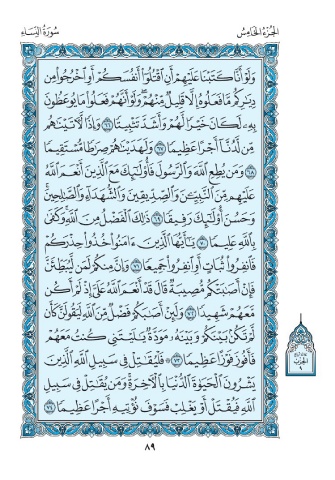 الجزء الخامس
سورة النساء
وَلَوْ أَنَّا كَتَبْنَا عَلَيْهِمْ أَنِ ٱقْتُلُوٓا۟ أَنفُسَكُمْ أَوِ ٱخْرُجُوا۟ مِن
دِيَٰرِكُم مَّا فَعَلُوهُ إِلَّا قَلِيلٌ مِّنْهُمْ ۖ وَلَوْ أَنَّهُمْ فَعَلُوا۟ مَا يُوعَظُونَ
بِهِۦ لَكَانَ خَيْرًا لَّهُمْ وَأَشَدَّ تَثْبِيتًا ٦٦ وَإِذًا لَّءَاتَيْنَٰهُم
مِّن لَّدُنَّآ أَجْرًا عَظِيمًا ٦٧ وَلَهَدَيْنَٰهُمْ صِرَٰطًا مُّسْتَقِيمًا
٦٨ وَمَن يُطِعِ ٱللَّهَ وَٱلرَّسُولَ فَأُو۟لَٰٓئِكَ مَعَ ٱلَّذِينَ أَنْعَمَ ٱللَّهُ
عَلَيْهِم مِّنَ ٱلنَّبِيِّۦنَ وَٱلصِّدِّيقِينَ وَٱلشُّهَدَآءِ وَٱلصَّٰلِحِينَ ۚ
وَحَسُنَ أُو۟لَٰٓئِكَ رَفِيقًا ٦٩ ذَٰلِكَ ٱلْفَضْلُ مِنَ ٱللَّهِ ۚ وَكَفَىٰ
بِٱللَّهِ عَلِيمًا ٧٠ يَٰٓأَيُّهَا ٱلَّذِينَ ءَامَنُوا۟ خُذُوا۟ حِذْرَكُمْ
فَٱنفِرُوا۟ ثُبَاتٍ أَوِ ٱنفِرُوا۟ جَمِيعًا ٧١ وَإِنَّ مِنكُمْ لَمَن لَّيُبَطِّئَنَّ
فَإِنْ أَصَٰبَتْكُم مُّصِيبَةٌ قَالَ قَدْ أَنْعَمَ ٱللَّهُ عَلَىَّ إِذْ لَمْ أَكُن
مَّعَهُمْ شَهِيدًا ٧٢ وَلَئِنْ أَصَٰبَكُمْ فَضْلٌ مِّنَ ٱللَّهِ لَيَقُولَنَّ كَأَن
لَّمْ تَكُنۢ بَيْنَكُمْ وَبَيْنَهُۥ مَوَدَّةٌ يَٰلَيْتَنِى كُنتُ مَعَهُمْ
فَأَفُوزَ فَوْزًا عَظِيمًا ٧٣ فَلْيُقَٰتِلْ فِى سَبِيلِ ٱللَّهِ ٱلَّذِينَ
يَشْرُونَ ٱلْحَيَوٰةَ ٱلدُّنْيَا بِٱلْءَاخِرَةِ ۚ وَمَن يُقَٰتِلْ فِى سَبِيلِ
ٱللَّهِ فَيُقْتَلْ أَوْ يَغْلِبْ فَسَوْفَ نُؤْتِيهِ أَجْرًا عَظِيمًا ٧٤
٨٩